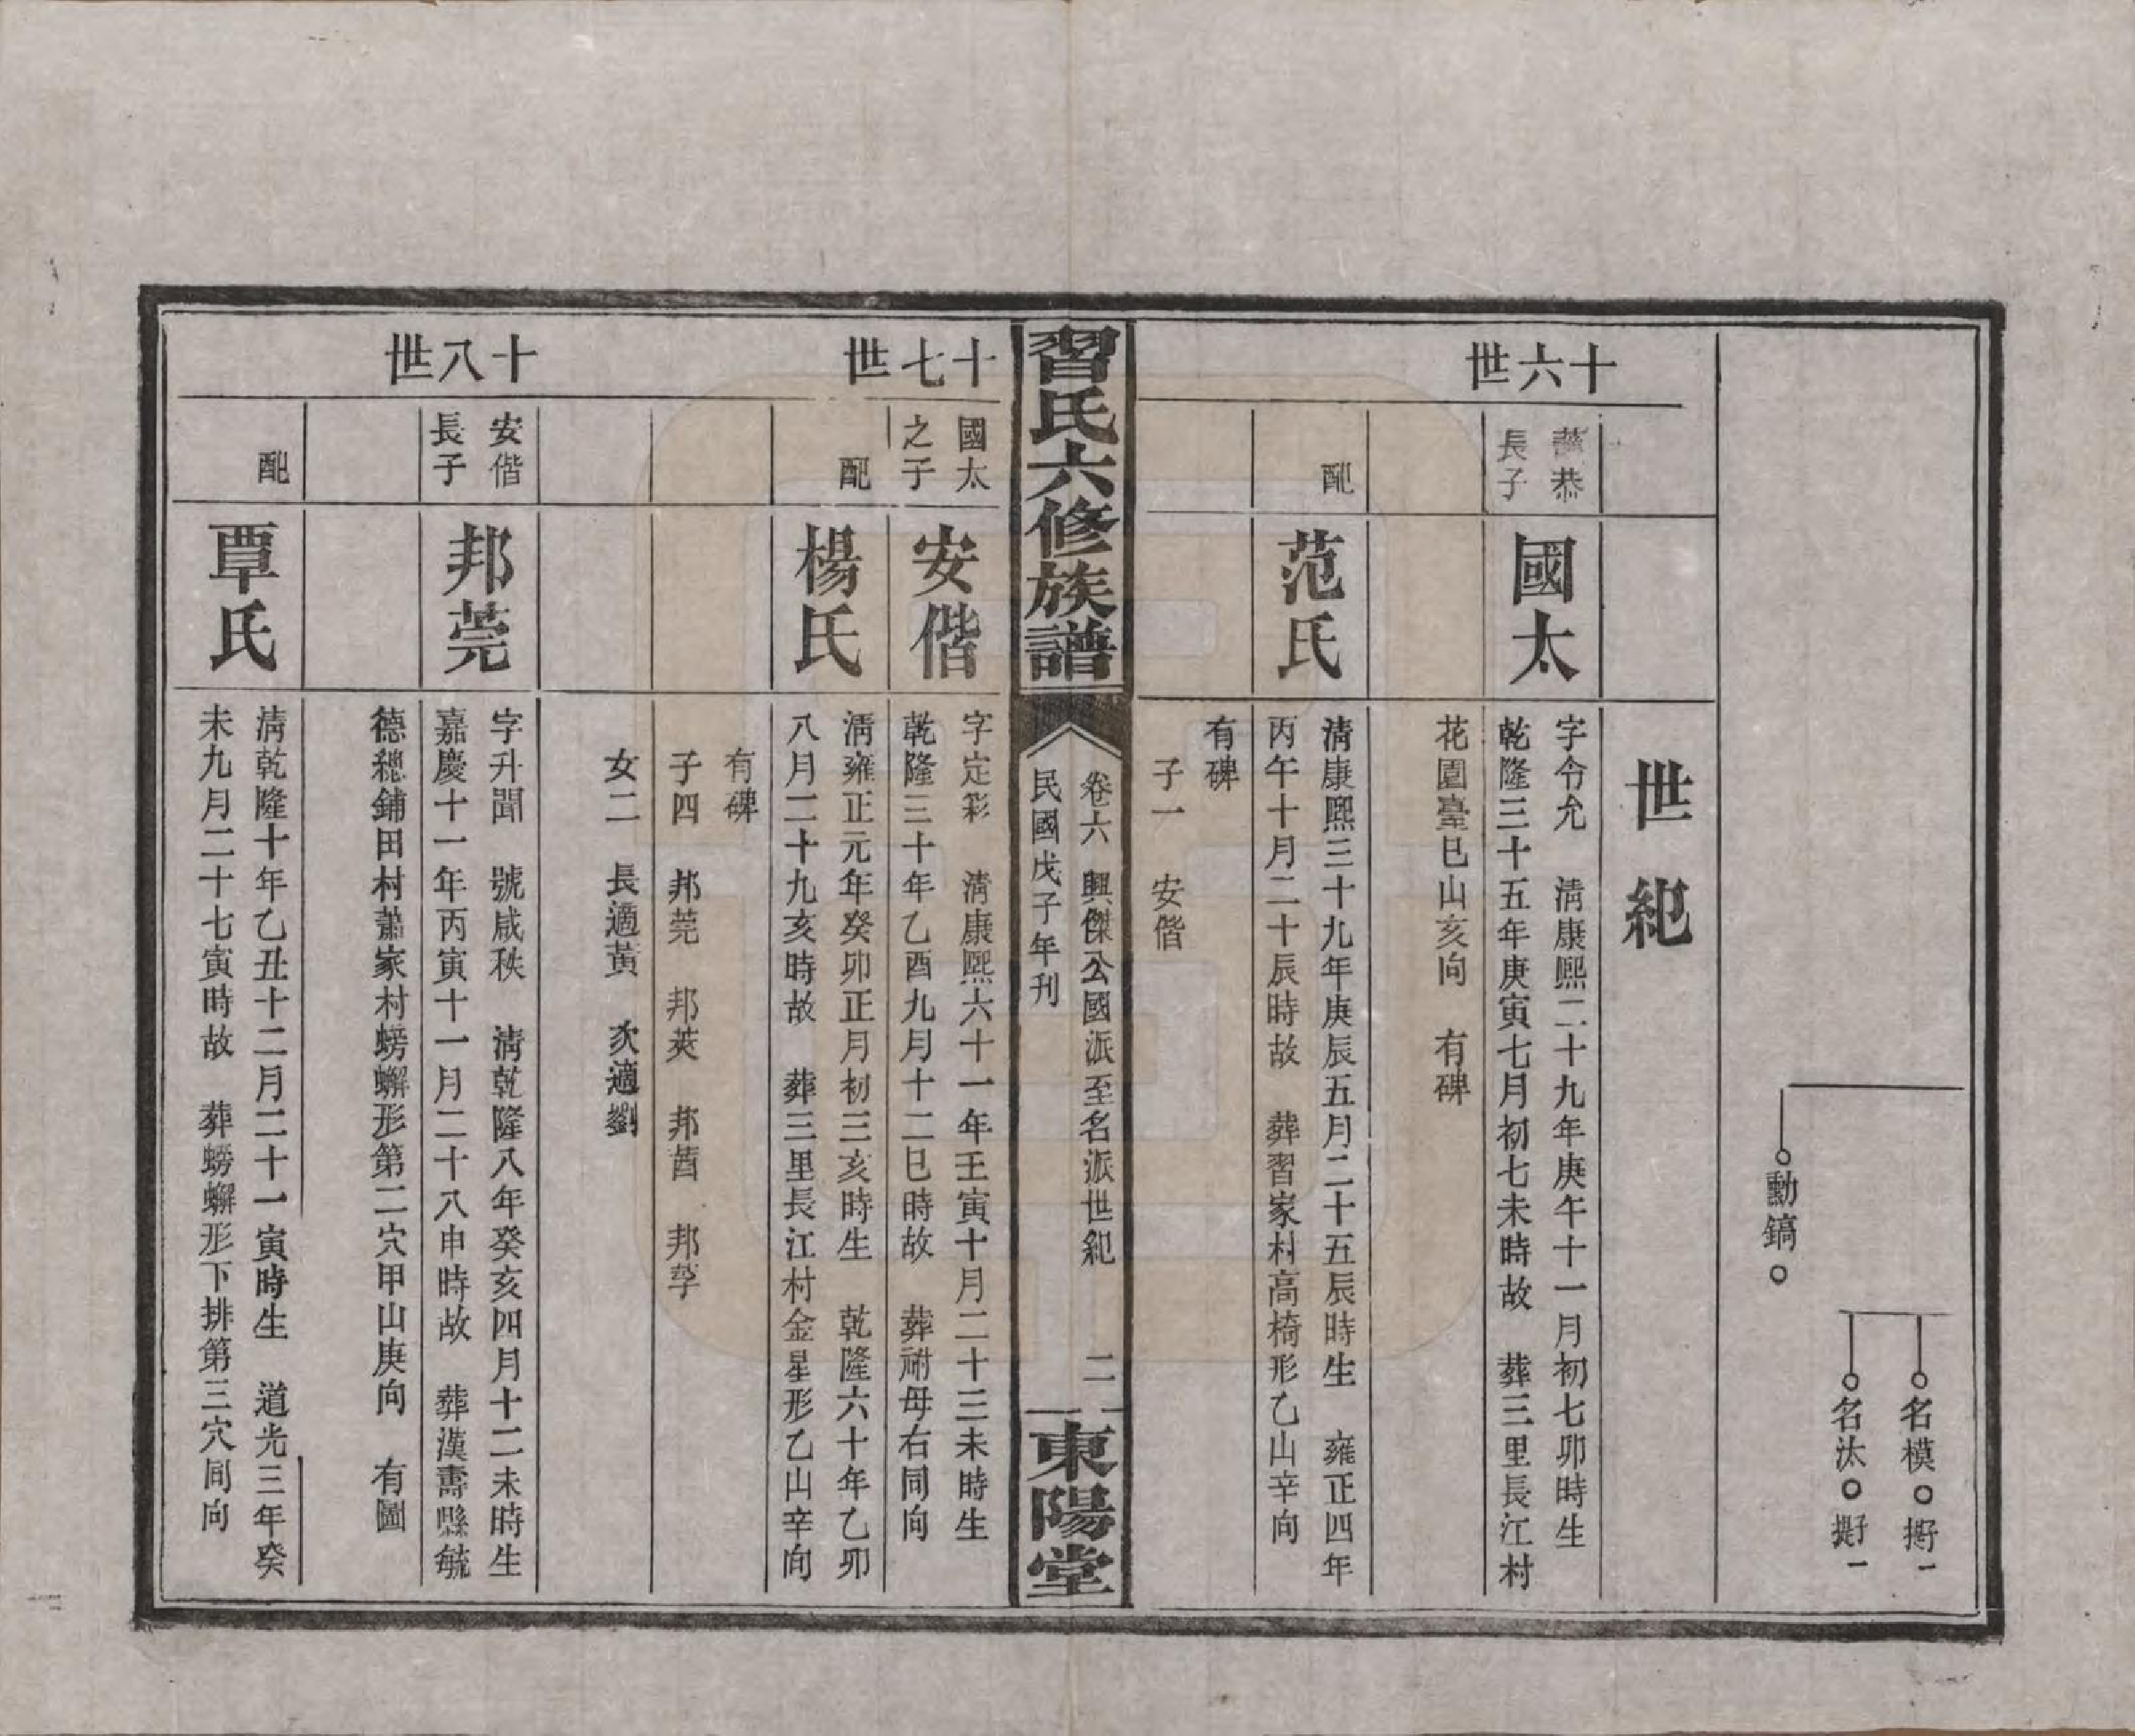 名模○
名汰○
勳鎬○
世紀
十六世
恭
長子
國太
字令允　清康熙二十九年庚午十一月初七卯時生
乾隆三十五年庚寅七月初七未時故　葬三里長江村
花園臺巳山亥向　有碑
配
范氏
清康熙三十九年庚辰五月二十五辰時生　雍正四年
丙午十月二十辰時故　葬習家村高椅形乙山辛向
有碑
子一　安偕
習氏六修族譜
卷六　興傑公國派至名派世紀　二
民國戊子年刊
東陽堂
十七世
國太
之子
安偕
字定彩　清康熙六十一年壬寅十月二十三未時生
乾隆三十年乙酉九月十二巳時故　葬祔母右同向
配
楊氏
清雍正元年癸卯正月初三亥時生　乾隆六十年乙卯
八月二十九亥時故　葬三里長江村金星形乙山辛向
有碑
子四　邦莞　邦莢　邦莤　邦莩
女二　長適黃　次適劉
十八世
安偕
長子
邦莞
字升聞　號咸秩　清乾隆八年癸亥四月十二未時生
嘉慶十一年丙寅十一月二十八申時故　葬漢壽縣毓
德總鋪田村蕭家村螃蠏形第二穴甲山庚向　有圖
配
覃氏
清乾隆十年乙丑十二月二十一寅時生　道光三年癸
未九月二十七寅時故　葬螃蠏形下排第三穴同向